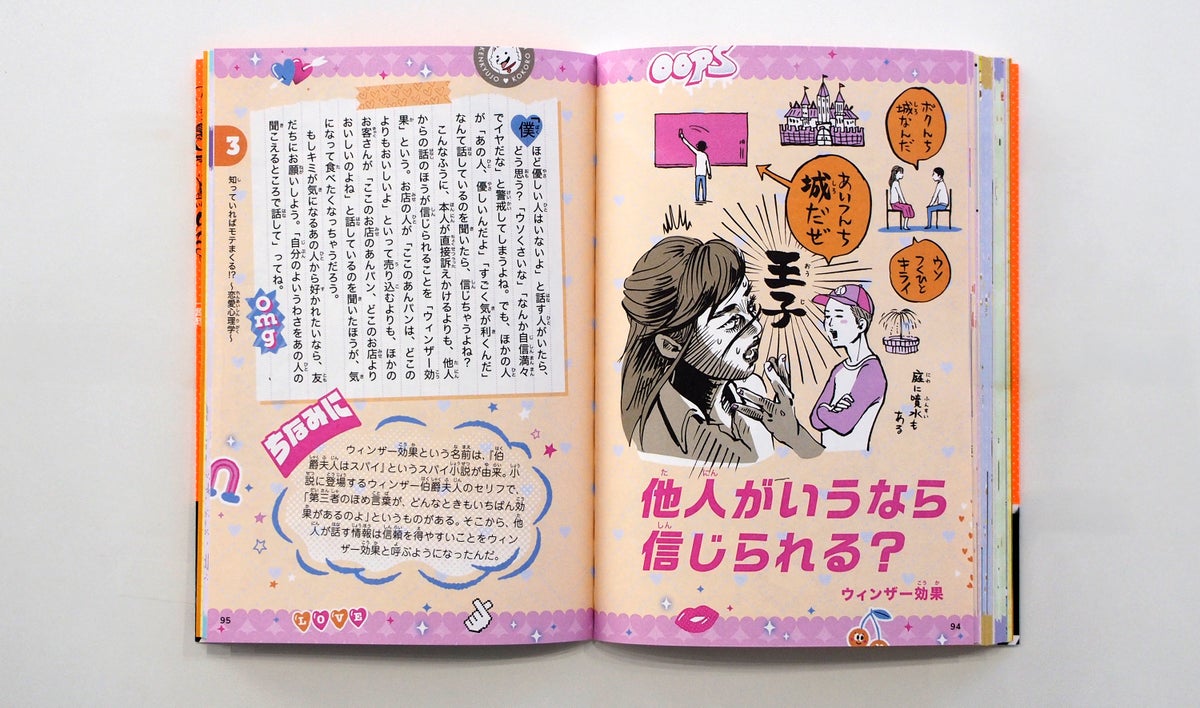 OOPS
ボクんち
城なんだ
あいつんち
城だぜ
ウソ
つくひと
キライ
王子
庭に噴水も
ある
他人がいうなら
信じられる？
ウィンザー効果
94
KENKYUJO ♥ KOKORO
「僕ほど優しい人はいないよ」と話す人がいたら、
どう思う？「ウソくさいな」「なんか自信満々
でイヤだな」と警戒してしまうよね。でも、ほかの人
が「あの人、優しいんだよ」「すごく気が利くんだ」
なんて話しているのを聞いたら、信じちゃうよね？
こんなふうに、本人が直接訴えかけるよりも、他人
からの話のほうが信じられることを「ウィンザー効
果」という。お店の人が「ここのあんパンは、どこの
よりもおいしいよ」といって売り込むよりも、ほかの
お客さんが「ここのお店のあんパン、どこのお店より
おいしいのよね」と話しているのを聞いたほうが、気
になって食べたくなっちゃうだろう。
もしキミが気になるあの人から好かれたいなら、友
だちにお願いしよう。「自分のよいうわさをあの人の
聞こえるところで話して」ってね。
omg
3
知っていればモテまくる!? ～恋愛心理学～
ちなみに
ウィンザー効果という名前は、『伯
爵夫人はスパイ』というスパイ小説が由来。小
説に登場するウィンザー伯爵夫人のセリフで、
「第三者のほめ言葉が、どんなときもいちばん効
果があるのよ」というものがある。そこから、他
人が話す情報は信頼を得やすいことをウィン
ザー効果と呼ぶようになったんだ。
LOVE
95